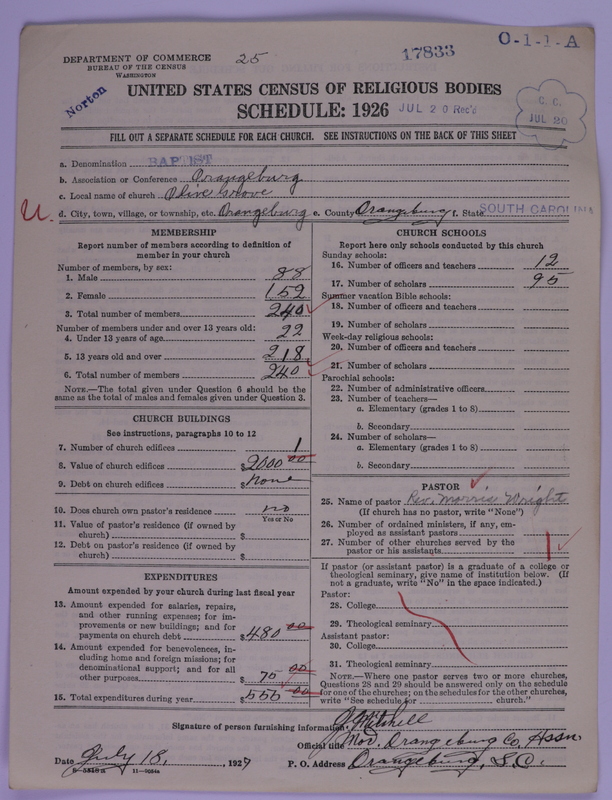 DEPARTMENT OF COMMERCE
BUREAU OF THE CENSUS
WASHINGTON
25
17833
O-1-1-A
Norton
UNITED STATES CENSUS OF RELIGIOUS BODIES
SCHEDULE: 1926
JUL 20 Rec'd
C. C.
JUL 20
FILL OUT A SEPARATE SCHEDULE FOR EACH CHURCH. SEE INSTRUCTIONS ON THE BACK OF THIS SHEET
a. Denomination BAPTIST
b. Association or Conference Orangeburg
c. Local name of church Olive Grove
U. d. City, town, village, or township, etc. Orangeburg e. County Orangeburg f. State SOUTH CAROL
MEMBERSHIP
Report number of members according to definition of
member in your church
Number of members, by sex:
1. Male 88
2. Female 152
3. Total number of members 240
Number of members under and over 13 years old:
4. Under 13 years of age 22
5. 13 years old and over 218
6. Total number of members 240
NOTE.—The total given under Question 6 should be the
same as the total of males and females given under Question 3.
CHURCH BUILDINGS
See instructions, paragraphs 10 to 12
7. Number of church edifices 1
8. Value of church edifices $2000 00
9. Debt on church edifices $ none
10. Does church own pastor's residence no
Yes or No
11. Value of pastor's residence (if owned by
church) $
12. Debt on pastor's residence (if owned by
church) $
EXPENDITURES
Amount expended by your church during last fiscal year
13. Amount expended for salaries, repairs,
and other running expenses; for im-
provements or new buildings; and for
payments on church debt $480 00
14. Amount expended for benevolences, in-
cluding home and foreign missions; for
denominational support; and for all
other purposes $ 70 00
15. Total expenditures during year $ 550 00
CHURCH SCHOOLS
Report here only schools conducted by this church
Sunday schools:
16. Number of officers and teachers 12
17. Number of scholars 95
Summer vacation Bible schools:
18. Number of officers and teachers
19. Number of scholars
Week-day religious schools:
20. Number of officers and teachers
21. Number of scholars
Parochial schools:
22. Number of administrative officers
23. Number of teachers—
a. Elementary (grades 1 to 8)
b. Secondary
24. Number of scholars—
a. Elementary (grades 1 to 8)
b. Secondary
PASTOR
25. Name of pastor Rev. Morris Wright
(If church has no pastor, write "None")
26. Number of ordained ministers, if any, em-
ployed as assistant pastors
27. Number of other churches served by the
pastor or his assistants 1
If pastor (or assistant pastor) is a graduate of a college or
theological seminary, give name of institution below. (If
not a graduate, write "No" in the space indicated.)
Pastor:
28. College
29. Theological seminary
Assistant pastor:
30. College
31. Theological seminary
NOTE.—Where one pastor serves two or more churches,
Questions 28 and 29 should be answered only on the schedule
for one of the churches; on the schedules for the other churches,
write "See schedule for church."
Signature of person furnishing information J Mitchell
Official title Mod. Orangeburg Co. Assn.
Date July 18, 1927 P. O. Address Orangeburg, S.C.
11—9054a